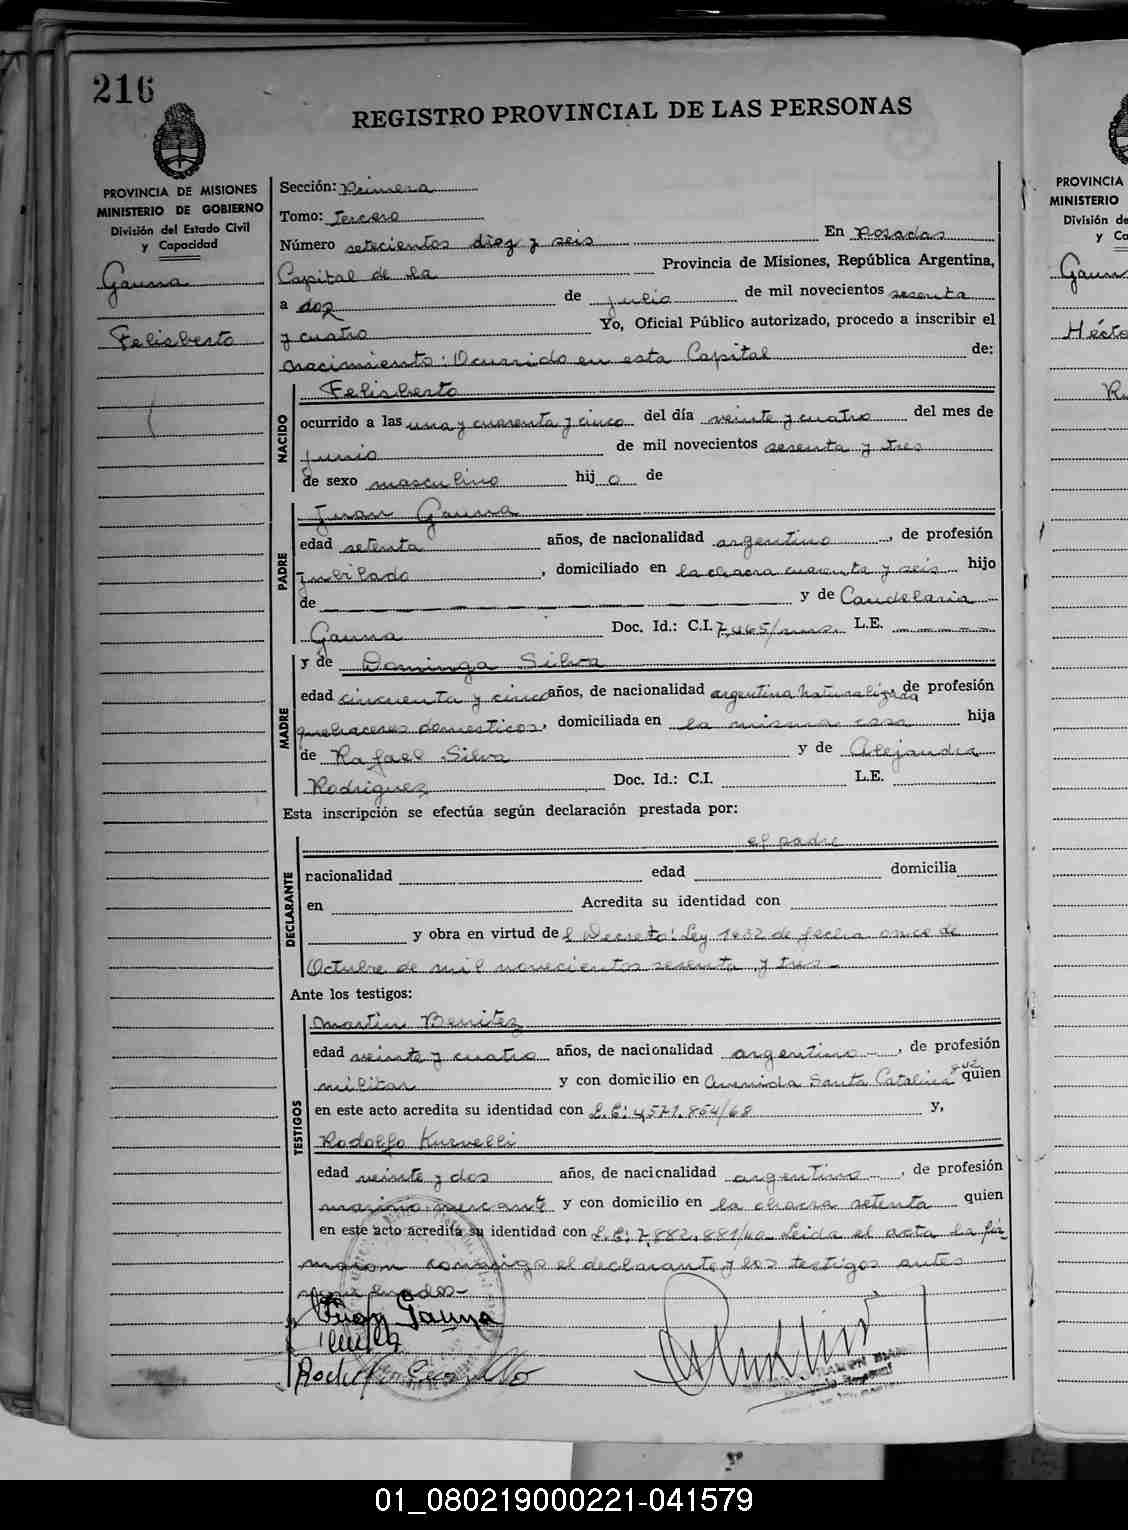 216
REGISTRO PROVINCIAL DE LAS PERSONAS
PROVINCIA DE MISIONES
MINISTERIO DE GOBIERNO
División del Estado Civil
y Capacidad
Gauna
Felisberto
Sección: Primera
Tomo: Tercero
Número setecientos diez y seis En Posadas
Capital de la Provincia de Misiones, República Argentina,
a dos de julio de mil novecientos sesenta
y cuatro Yo, Oficial Público autorizado, procedo a inscribir el
nacimiento: Ocurrido en esta Capital de:
NACIDO
Felisberto
ocurrido a las una y cuarenta y cinco del día veinte y cuatro del mes de
junio de mil novecientos sesenta y tres
de sexo masculino hij o de
PADRE
Juan Gauna
edad setenta años, de nacionalidad argentino, de profesión
jubilado, domiciliado en la chacra cuarenta y seis hijo
de y de Candelaria
Gauna Doc. Id.: C.I. L.E.
MADRE
y de Dominga Silva
edad cincuenta y cinco años, de nacionalidad argentina naturalizada de profesión
quehaceres domesticos, domiciliada en la misma casa hija
de Rafael Silva y de Alejandra
Rodriguez Doc. Id.: C.I. L.E.
Esta inscripción se efectúa según declaración prestada por:
DECLARANTE
el padre
nacionalidad edad domicilia
en Acredita su identidad con
y obra en virtud del Decreto: Ley 1432 de fecha once de
Octubre de mil novecientos sesenta y tres
Ante los testigos:
TESTIGOS
Martin Benitez
edad veinte y cuatro años, de nacionalidad argentino, de profesión
militar y con domicilio en Avenida Santa Catalina quien
en este acto acredita su identidad con L.E: 4,571.854/68 y,
Rodolfo Kurvelli
edad veinte y dos años, de nacionalidad argentino, de profesión
marino mercante y con domicilio en la chacra setenta quien
en este acto acredita su identidad con L.E: 7,882.881/40 Leida el acta la fir-
maron conmigo el declarante y los testigos antes
Juan Gauna
PROVINCIA
MINISTERIO
División de
y Ca
Gauna
Hécto
01_080219000221-041579